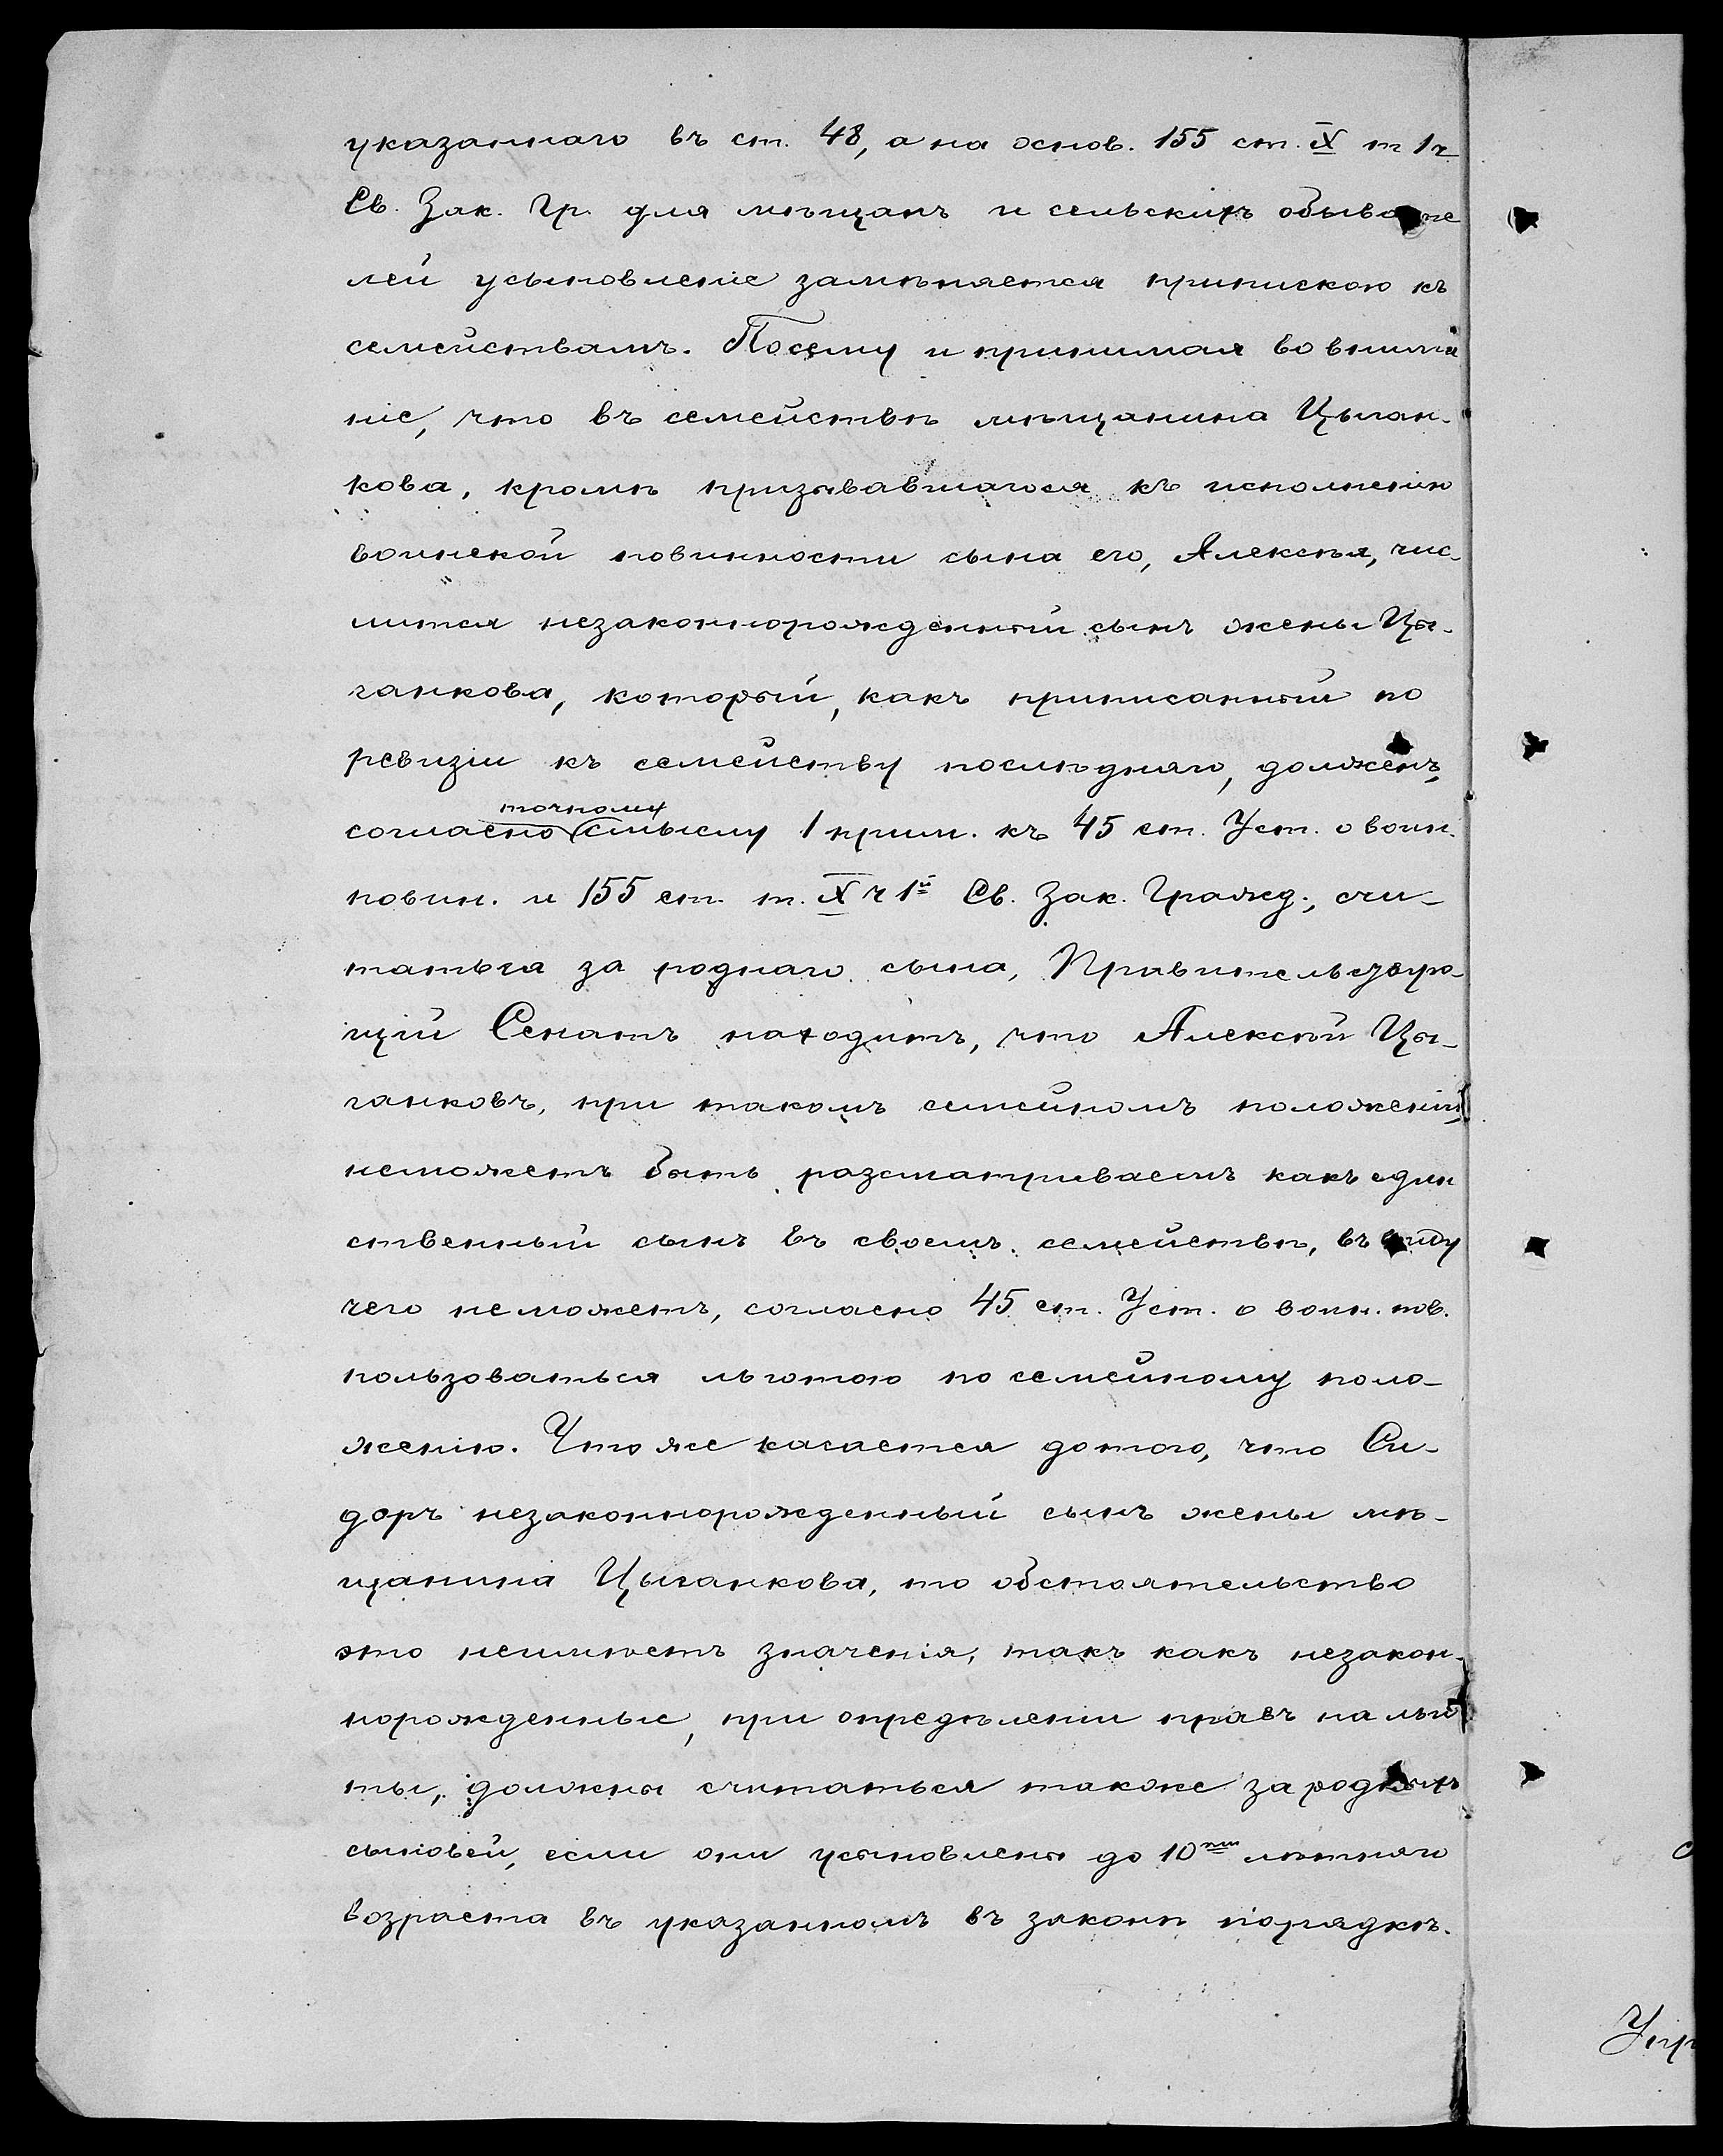 указаннаго въ ст. 48, а на основ. 155 ст. X т 1 ч
Св. Зак. Гр. для мѣщанъ и сельскихъ обывате
лей усыновленіе замѣняется припискою къ
семействамъ. Посему и принимая во внима
ніе, что въ семействѣ мѣщанина Цыган-
кова, кромѣ призывавшагося къ исполненію
воинской повинности сына его, Алексѣя, чис-
лится незаконнорожденный сынъ жены Цы-
ганкова, который, какъ приписанный по
ревизіи къ семейству послѣдняго, долженъ,
согласно точному смыслу 1 прим. къ 45 ст. Уст. о воин.
повин. и 155 ст. т. X ч 1й Св. Зак. Гражд., счи-
таться за роднаго сына, Правительствую-
щій Сенатъ находитъ, что Алексѣй Цы-
ганковъ, при такомъ семейномъ положеніи,
неможетъ быть разсматриваемъ какъ един
ственный сынъ въ своемъ семействѣ, въ виду
чего неможетъ, согласно 45 ст. Уст. о воин. пов.
пользоваться льготою по семейному поло-
женію. Что же касается до того, что Си-
доръ незаконнорожденный сынъ жены мѣ-
щанина Цыганкова, то обстоятельство
это неимѣетъ значенія, такъ какъ незакон-
норожденные, при опредѣленіи правъ на льго
ты, должны считаться также за родныхъ
сыновей, если они усыновлены до 10ти лѣтняго
возраста въ указанномъ въ законѣ порядкѣ.